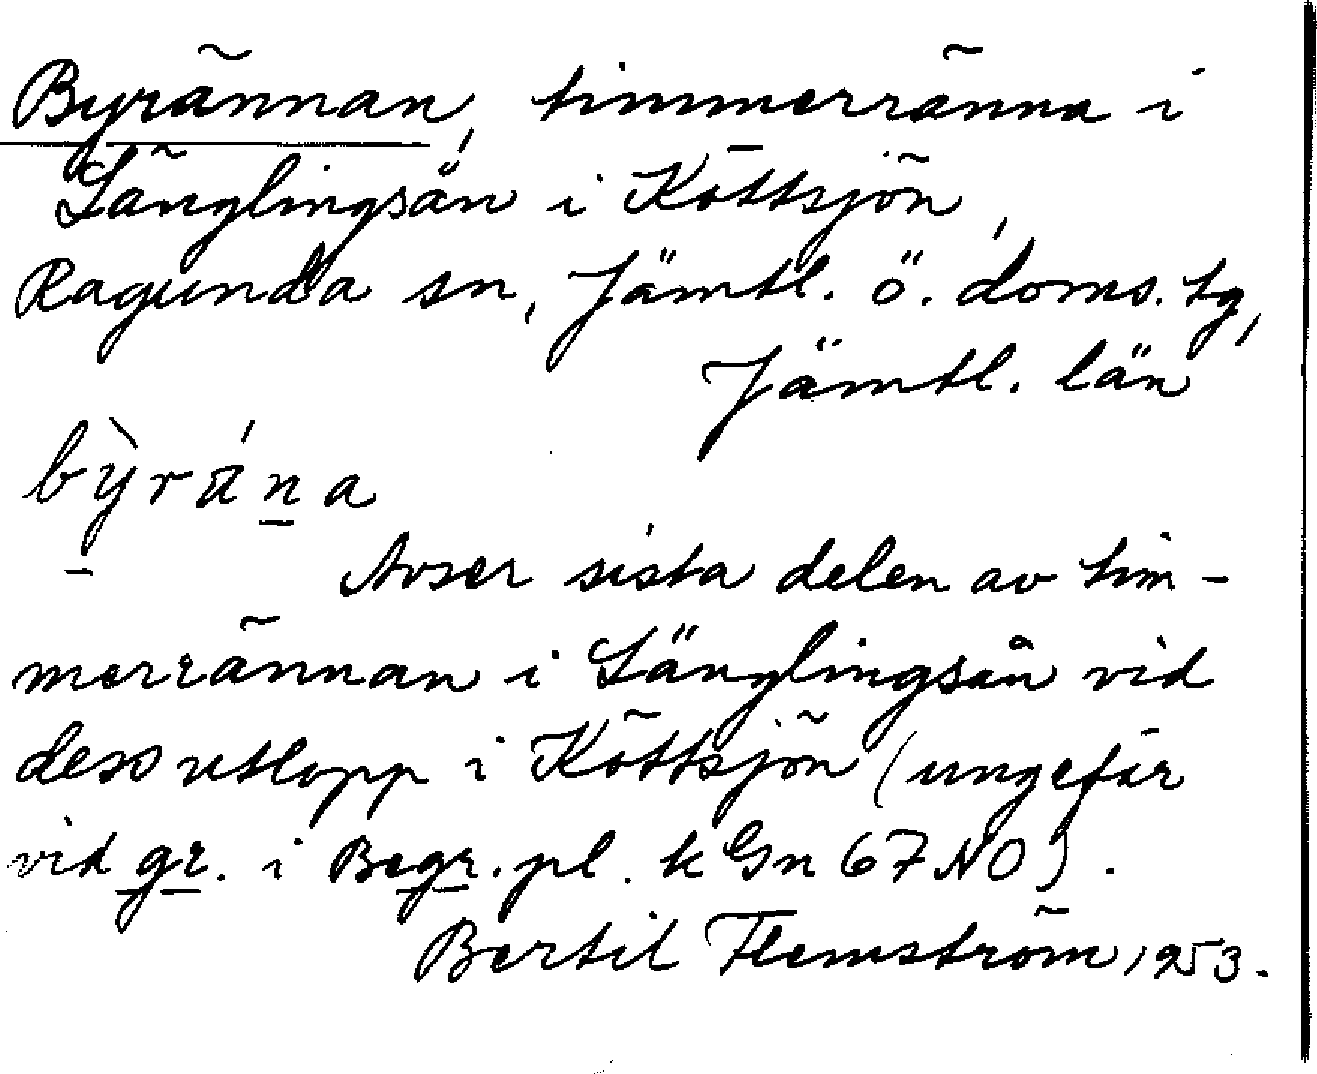 Byrännan, timmerränna i
Länglingsån i Köttsjön,
Ragunda sn, Jämtl. ö. doms. tg,
Jämtl. län
bỳ̠ráṉa
Avser sista delen av tim-
merrännan i Länglingsån vid
dess utlopp i Köttsjön (ungefär
vid gr. i Begr. pl. k Gn 67 NO).
Bertil Flemström, 1953.